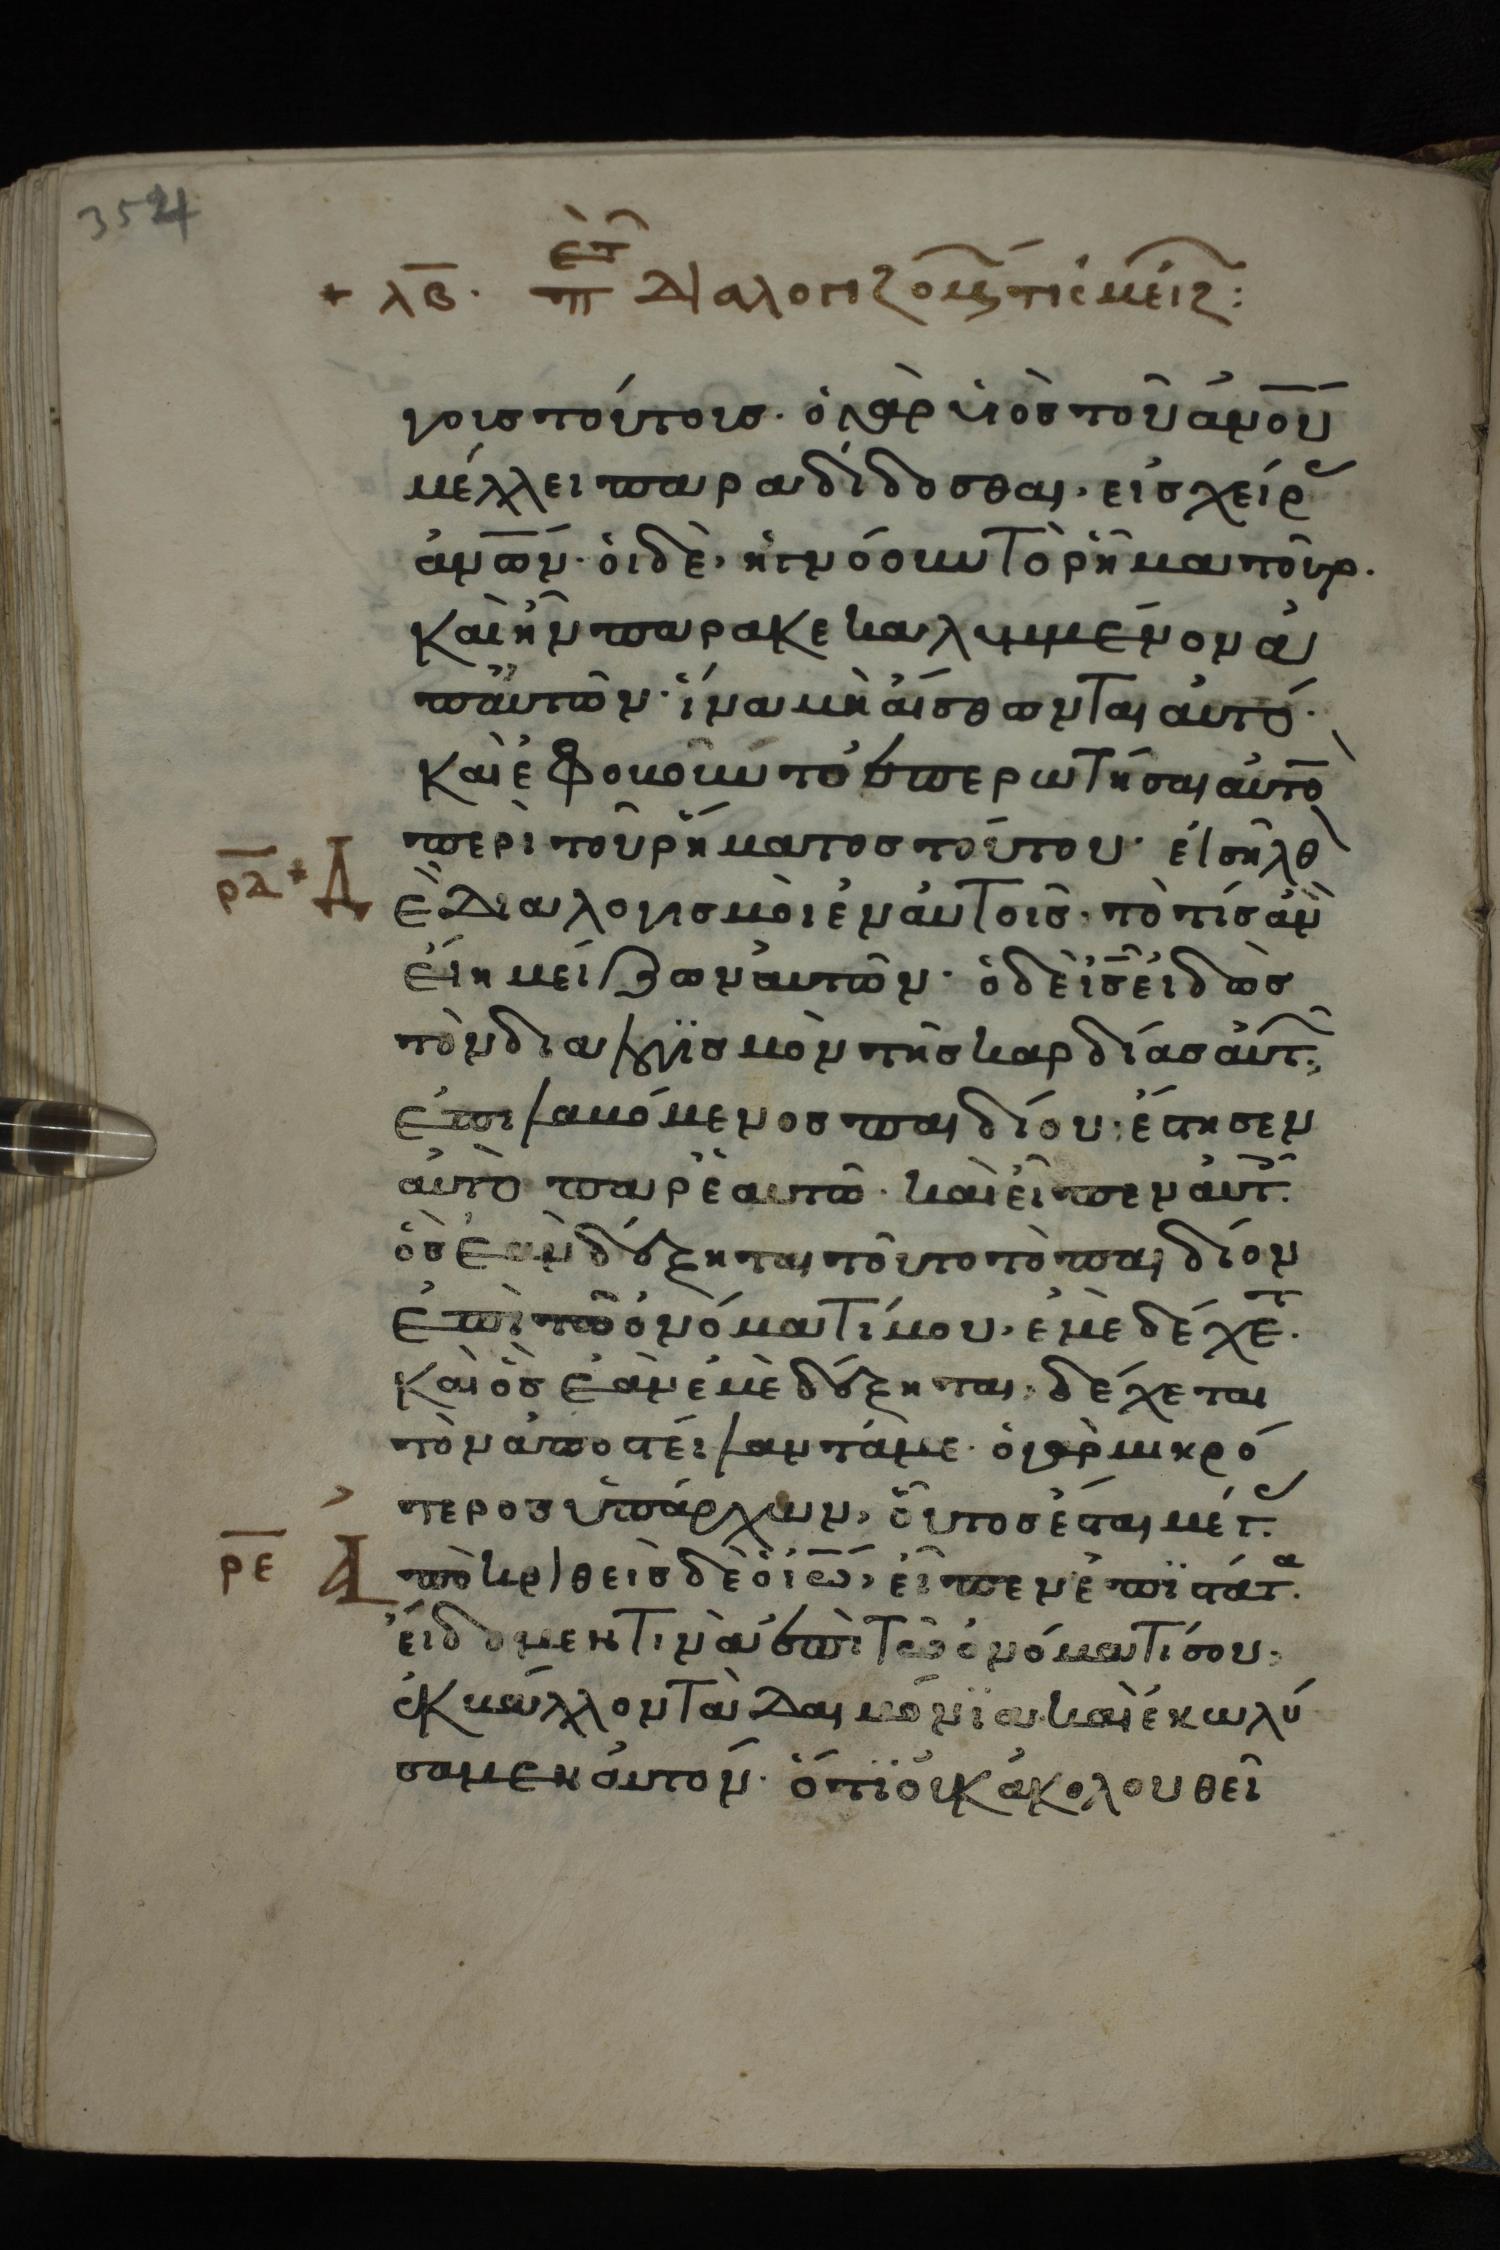 + λβ. π διαλογιζομ τίς μείζ:
γοις τούτοις· ὁ γὰρ υἱὸς τοῦ ἀνου
μέλλει παραδίδοσθαι, εἰς χεῖρ
ἀνων· οἱ δὲ, ἠγνόουν τὸ ῥῆμα τοῦτο.
καὶ ἦν παρακεκαλυμμένον ἀ
π' αὐτῶν· ἵνα μὴ αἴσθωνται αὐτό·
καὶ ἐφοβοῦντο ἐπερωτῆσαι αὐτὸ
περὶ τοῦ ῥήματος τούτου· εἰσῆλθ
ρδ * Δ
ὲ διαλογισμὸς ἐν αὐτοῖς, τὸ τίς ἂν
εἴη μείζων αὐτῶν· ὁ δὲ ις εἰδὼς
τὸν διαλογισμὸν τῆς καρδίας αὐτ,
ἐπιλαβόμενος παιδίου· ἔστησεν
αὐτὸ παρ' ἑαυτῶ· καὶ εἶπεν αὐτ.
ὃς ἐὰν δέξηται τοῦτο τὸ παιδίον
ἐπὶ τῶ ὀνόματί μου, ἐμὲ δέχετ.
καὶ ὃς ἐὰν ἐμὲ δέξηται, δέχεται
τὸν ἀποστείλαντά με· ὁ γὰρ μικρό
τερος ὑπάρχων, οὗτος ἔσται μέγ.
ρε Ἀ
ποκριθεὶς δὲ ὁ ἰω, εἶπεν ἐπϊστάτα.
εἴδομέν τινα ἐπὶ τῶ ὀνόματί σου,
ἐκβάλλοντα δαιμόνϊα καὶ ἐκωλύ
σαμεν αὐτόν· ὅτϊ οὐκ ἀκολουθεῖ